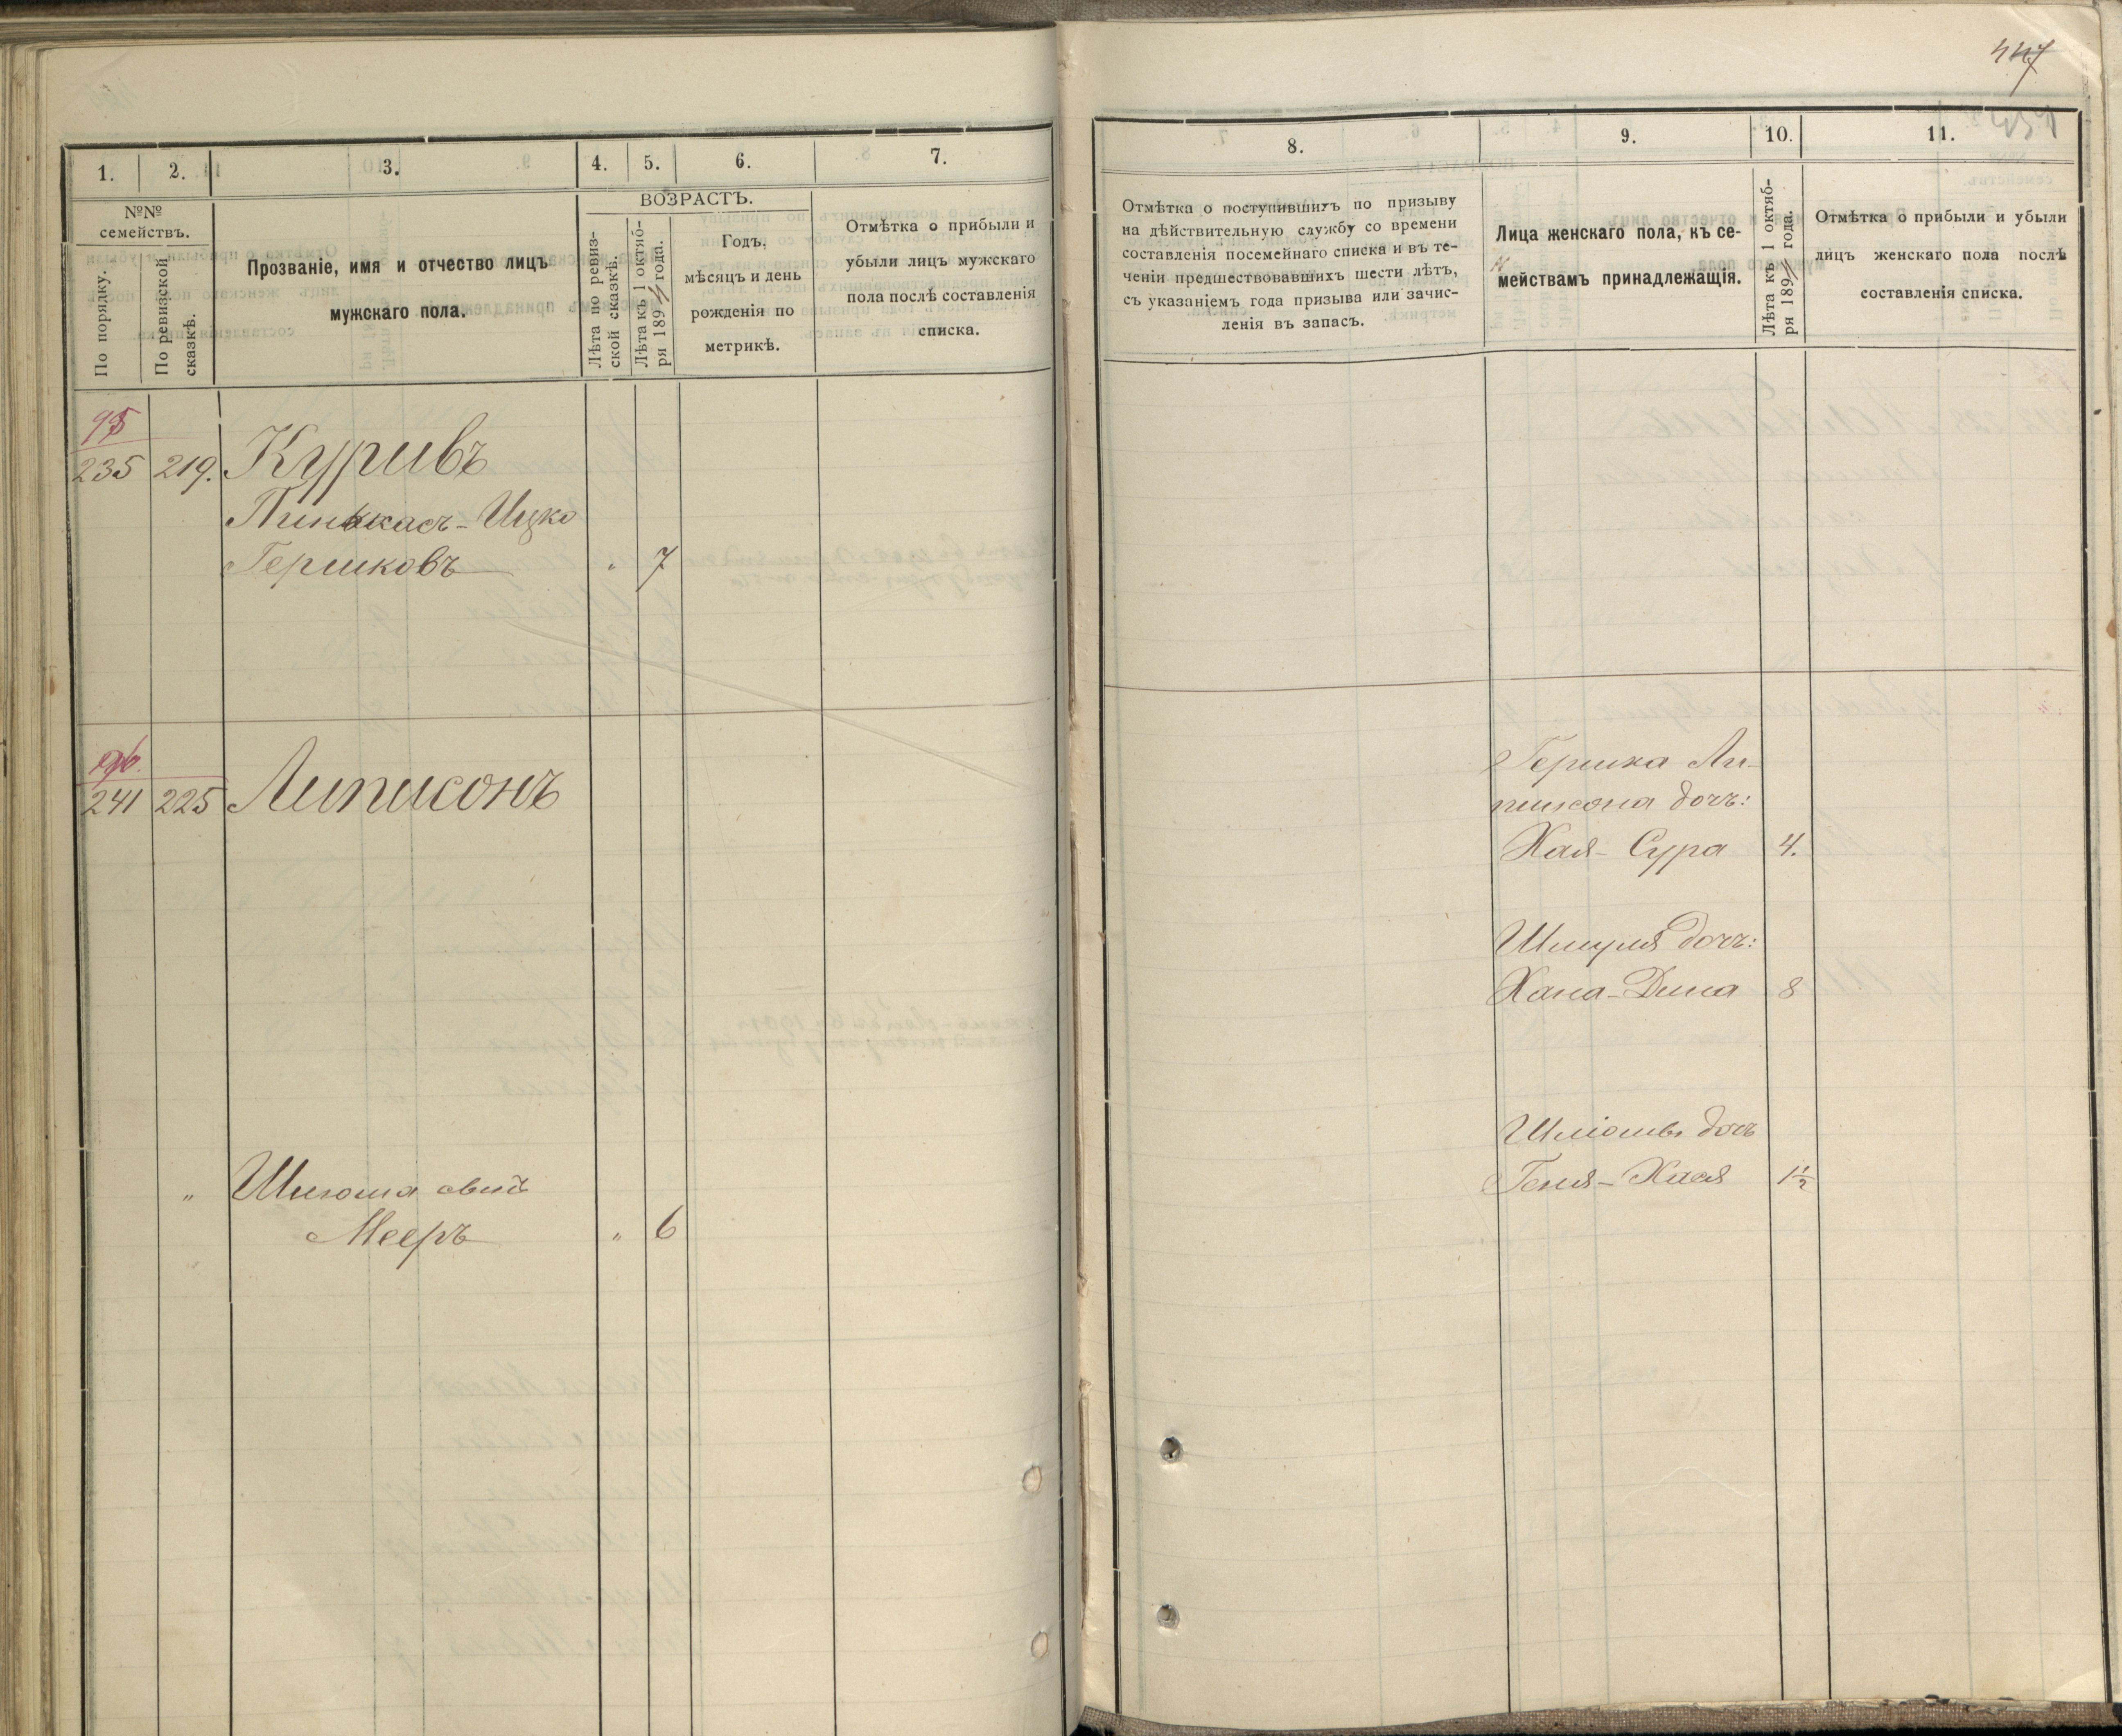 447
1.
2.
3.
4.
5.
6.
7.
№№
семействъ.
По порядку.
По ревизской
сказкѣ.
Прозваніе, имя и отчество лицъ
мужскаго пола.
ВОЗРАСТЪ.
Лѣта по ревиз-
ской сказкѣ.
Лѣта къ 1 октяб-
ря 189 года.
Годъ,
мѣсяцъ и день
рожденія по
метрикѣ.
Отмѣтка о прибыли и
убыли лицъ мужскаго
пола послѣ составленія
списка.
8.
9.
10.
11.
Отмѣтка о поступившихъ по призыву
на дѣйствительную службу со времени
составленія посемейнаго списка и въ те-
ченіи предшествовавшихъ шести лѣтъ,
съ указаніемъ года призыва или зачис-
ленія въ запасъ.
Лица женскаго пола, къ се-
мействамъ принадлежащія.
Лѣта къ 1 октяб-
ря 189 года.
Отмѣтка о прибыли и убыли
лицъ женскаго пола послѣ
составленія списка.
95
235 219. Куривъ
Пинхасъ-Ицко
Гершковъ " 7
96.
241 225 Липшсонъ
Гершка Ли-
пшсона дочь:
Хая-Сура 4.
Шмуля дочь:
Хана-Дина 8
Шліомы дочь
Геня-Хася 1½
" Шліома сынъ
Мееръ " 6